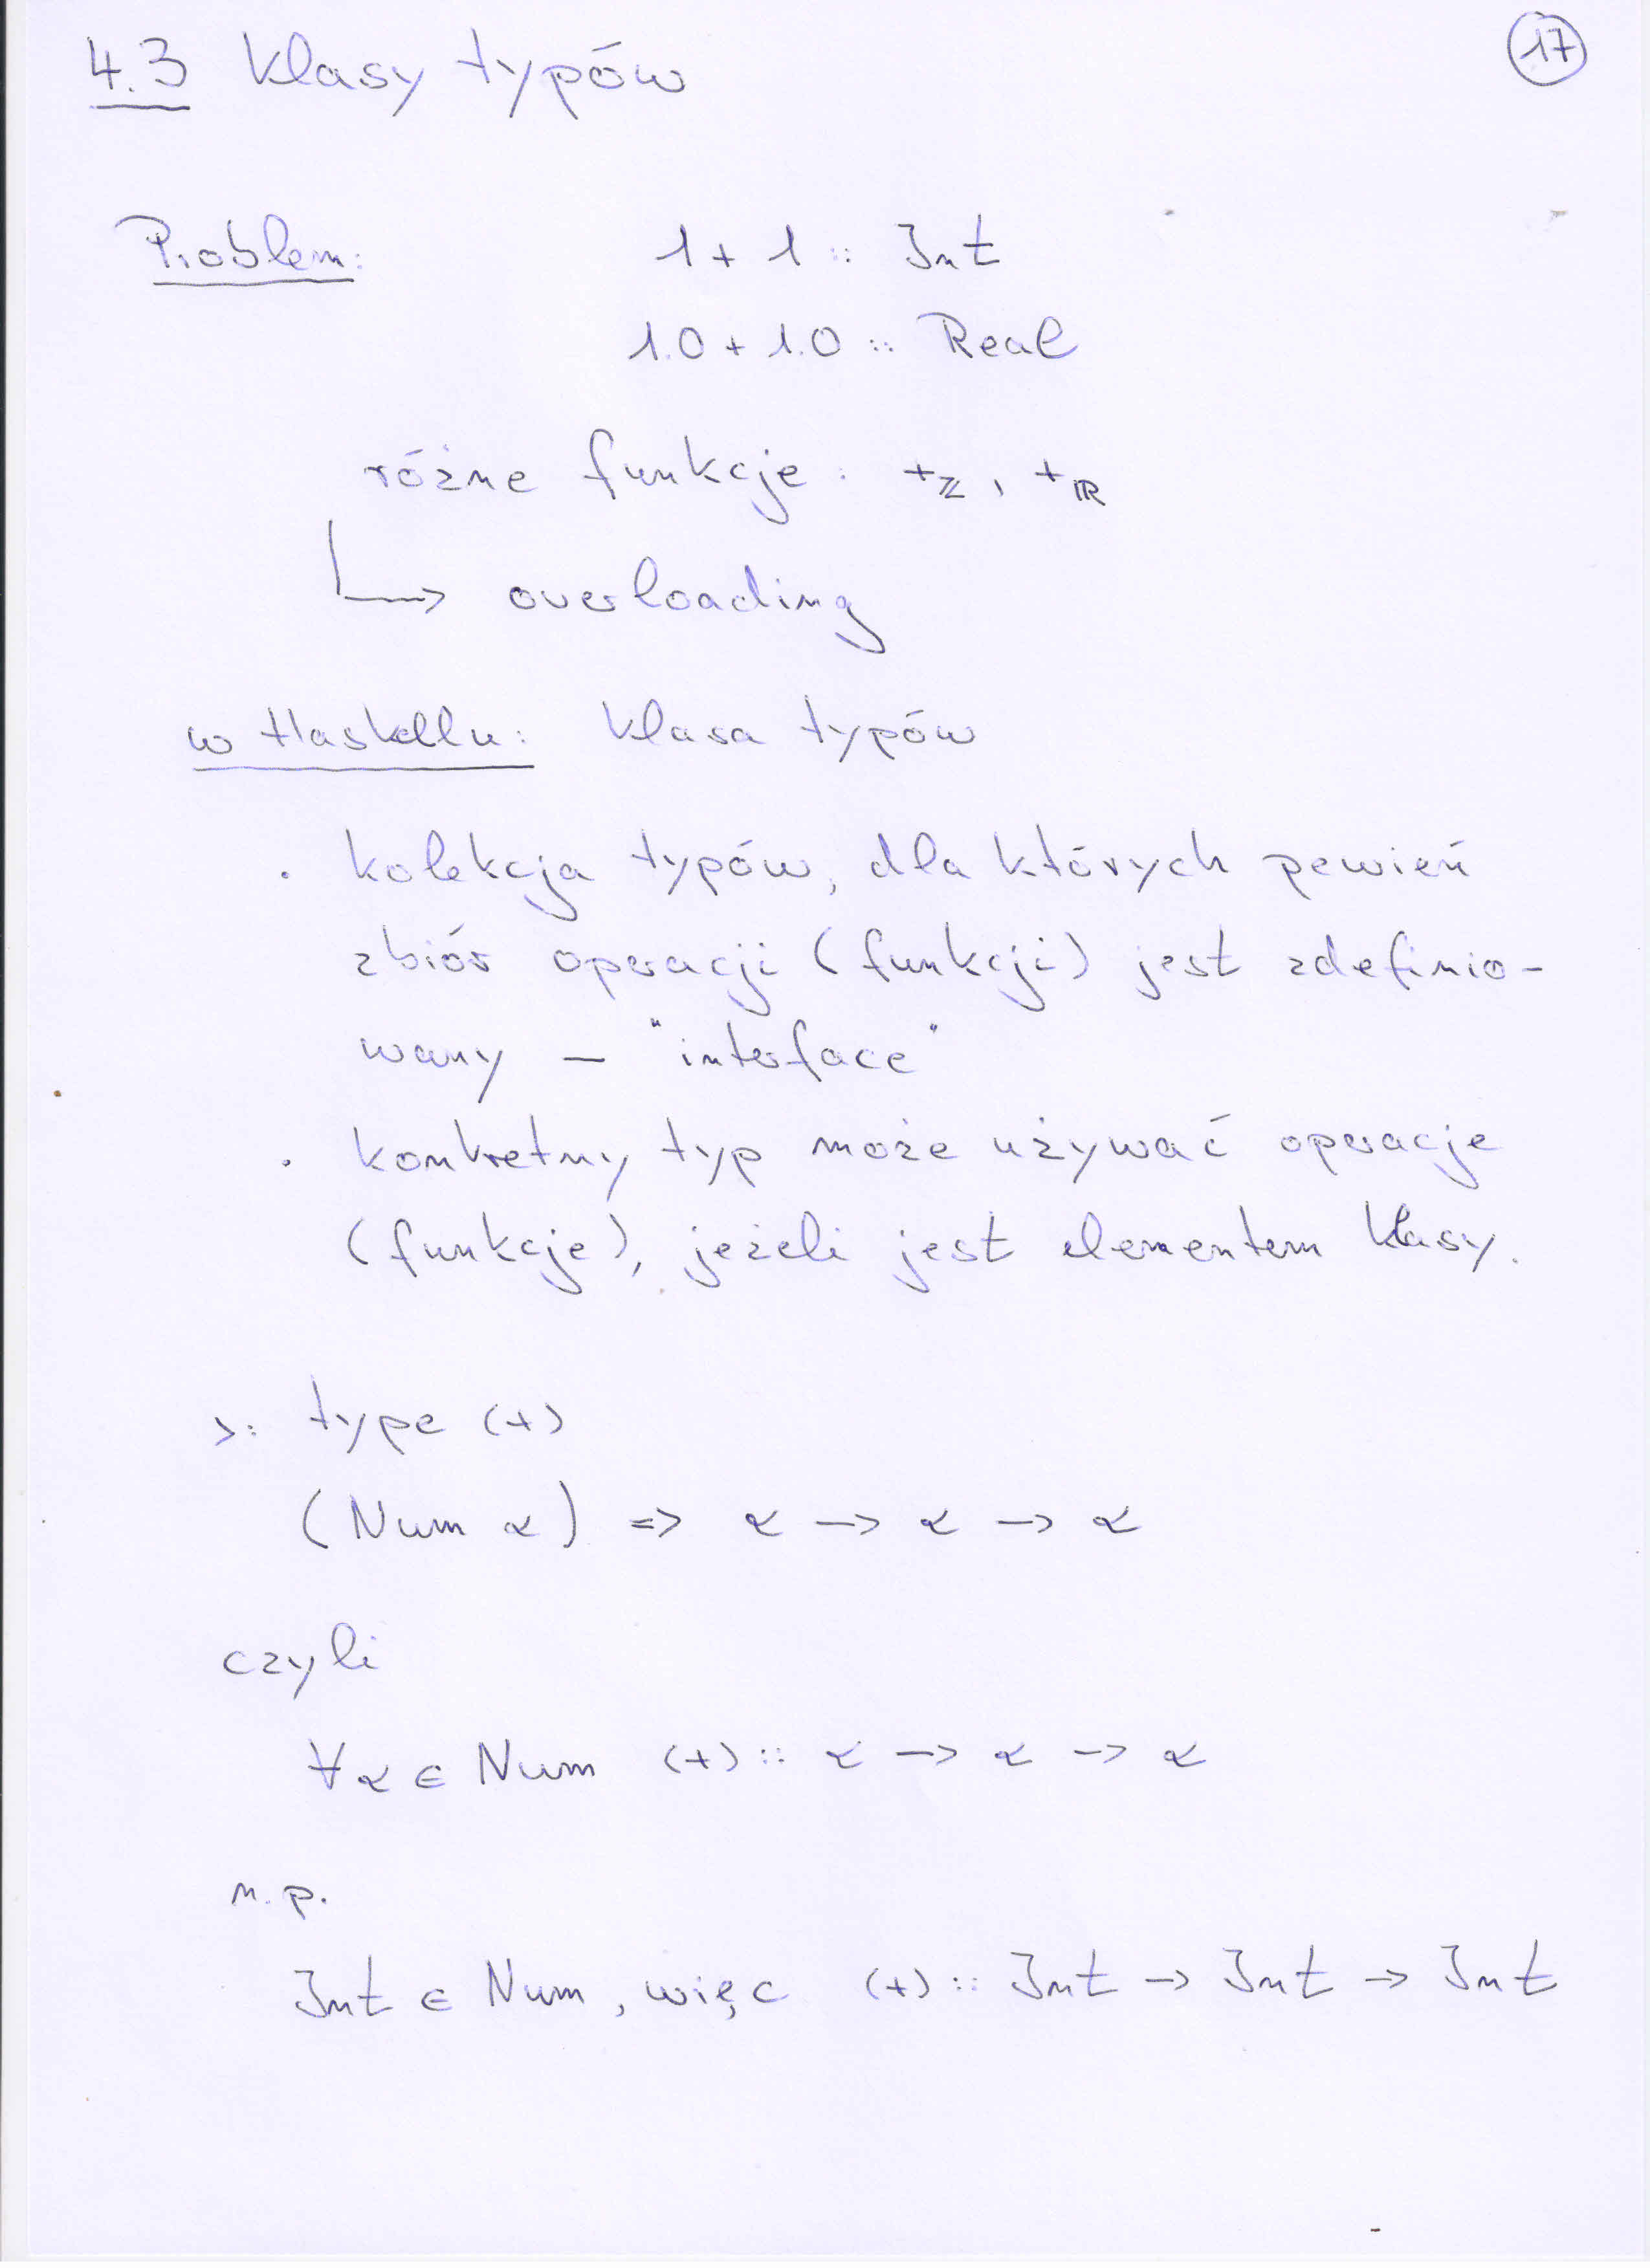 4.3 Klasy typów
17
Problem:
1 + 1 :: Int
1.0 + 1.0 :: Real
różne funkcje: +ℤ, +ℝ
↳ overloading
w Haskellu: klasa typów
· kolekcja typów, dla których pewień
zbiór operacji (funkcji) jest zdefinio-
wany – "interface"
· konkretny typ może używać operacje
(funkcje), jeżeli jest elementem klasy.
>: type (+)
(Num α) => α -> α -> α
czyli
∀α ∈ Num (+) :: α -> α -> α
n.p.
Int ∈ Num, więc (+) :: Int -> Int -> Int